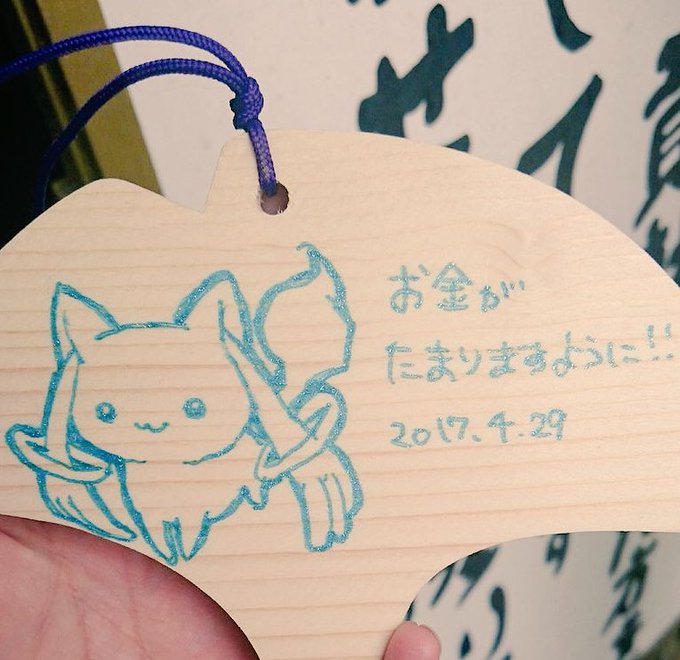 お金が
たまりますように!!
2017.4.29